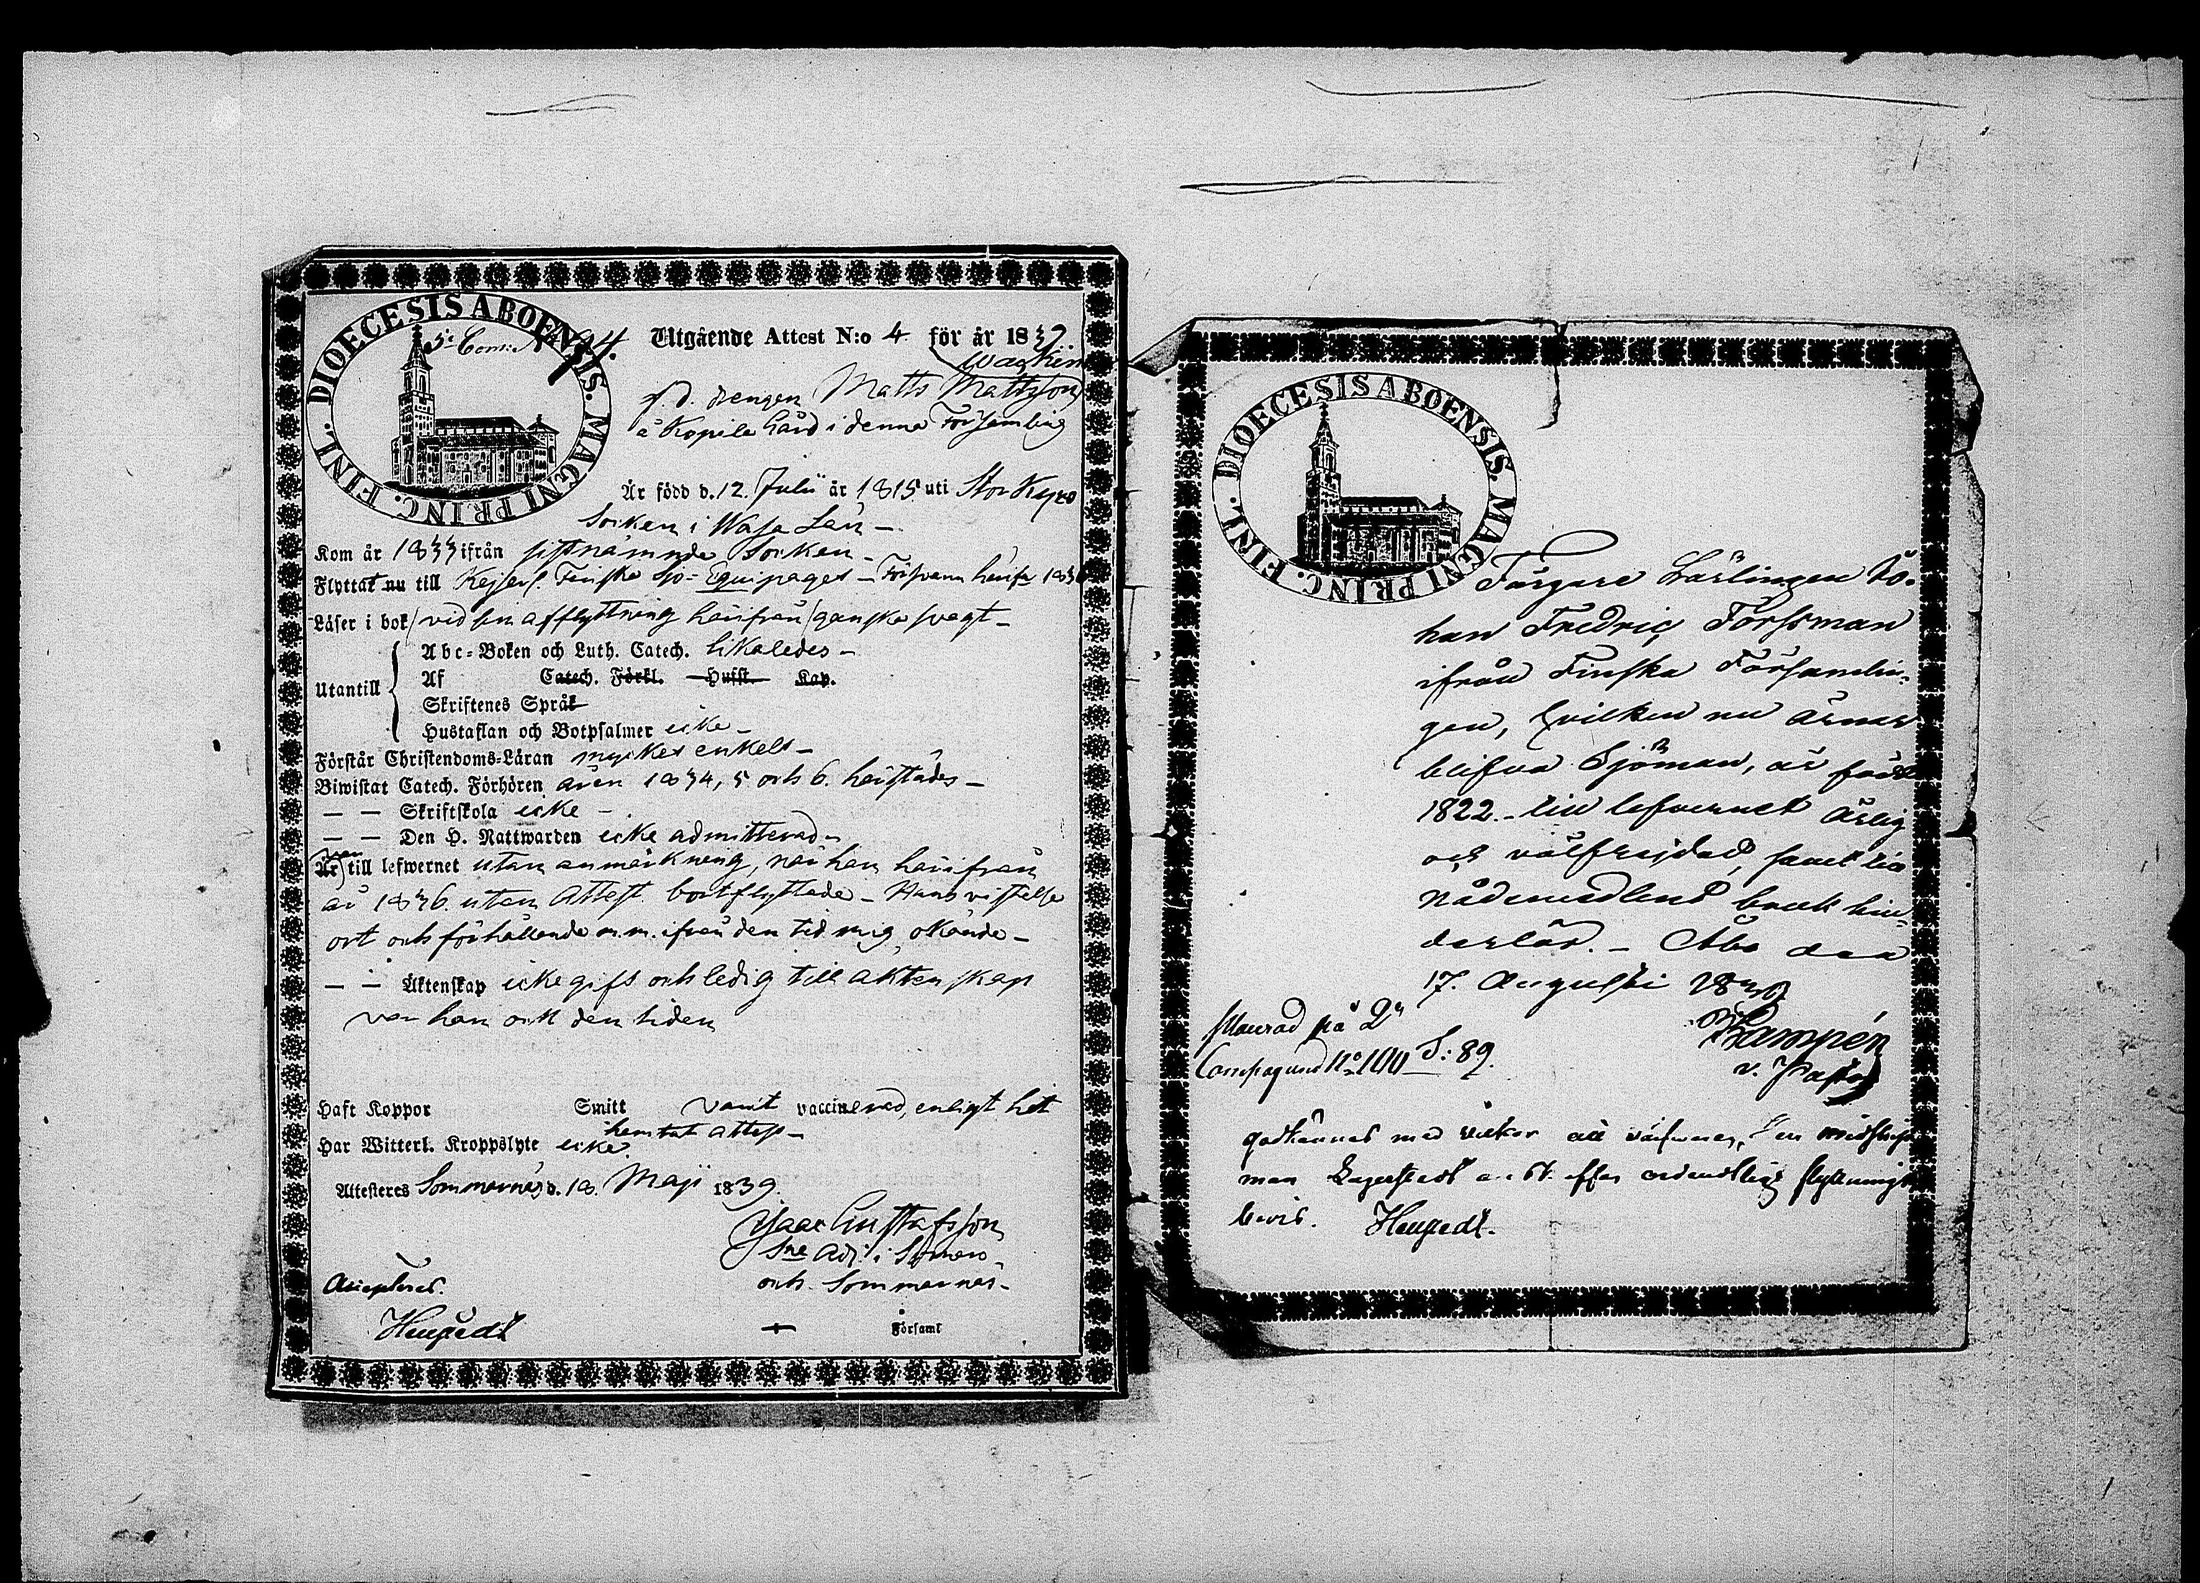 DIOECESIS ABOENSIS. MAGNI PRINC. FINL.
Utgående Attest N:o 4 för år 1839
f. d. drengen Matts Mattsson
å Kopila Gård i denna Församling
Är född d. 12. Julii år 1815 uti Stor Kyro
Socken i Wasa Län –
Kom år 1833 ifrån sistnämnde Socken –
Flyttat nu till Kejserl. Finska Sjö-Equipaget – Försvann härifr 1836
Läser i bok / vid sin afflyttning härifrån / ganska svagt –
Utantill
Abc-Boken och Luth. Catech. likaledes –
Af Catech. Förkl. Hufst. Kap.
Skriftenes Språk
Hustaflan och Botpsalmer icke –
Förstår Christendoms-Läran mycket enkelt –
Biwistat Catech. Förhören åren 1834, 5 och 6. härstädes –
– – Skriftskola icke –
– – Den H. Nattwarden icke admitterad –
Är till lefwernet utan anmärkning, när han härifrån
år 1836 utan Attest bortflyttade – Hans vistelse
ort och förhållande m.m. ifrån den tid mig okände –
– – Äktenskap icke gift och ledig till äktenskap
var han ock den tiden
Haft Koppor Smitt varit vaccinerad, enligt hit
hemtat attest –
Har Witterl. Kroppslyte icke
Attesteres Sommarnäs d. 18. Maji 1839.
Isaac Gustafsson
Adj. i Somero
och Sommarnäs –
Accepteras.
Församl
DIOECESIS ABOENSIS. MAGNI PRINC. FINL.
Färgare Lärlingen Jo-
han Fredric Forssman
ifrån Finska Församlin-
gen, hvilken nu ärnar
blifva Sjöman, är född
1822. – till lefvernet ärlig
och välfrejdad, samt till
nådemedlens bruk hin-
derlös. – Åbo den
17. Augusti
v. Pastor
på 2a
Compagniet No 100 S: 89.
godkännes med vilkor
man Lagerstedt ordentligt flyttnings
bevis.